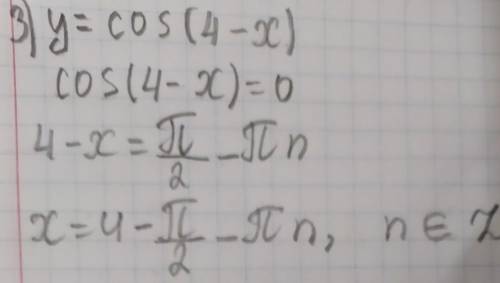 3) y = cos(4-x)
cos(4-x)=0
4-x = π/2 - πn
x = 4 - π/2 - πn, n ∈ Z